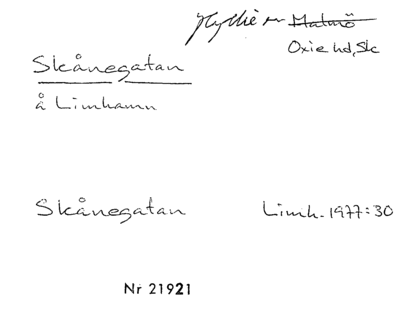 Hyllie sn Malmö
Oxie hd, Sk
Skånegatan
å Limhamn
Skånegatan Limh. 1977:30
Nr 21921